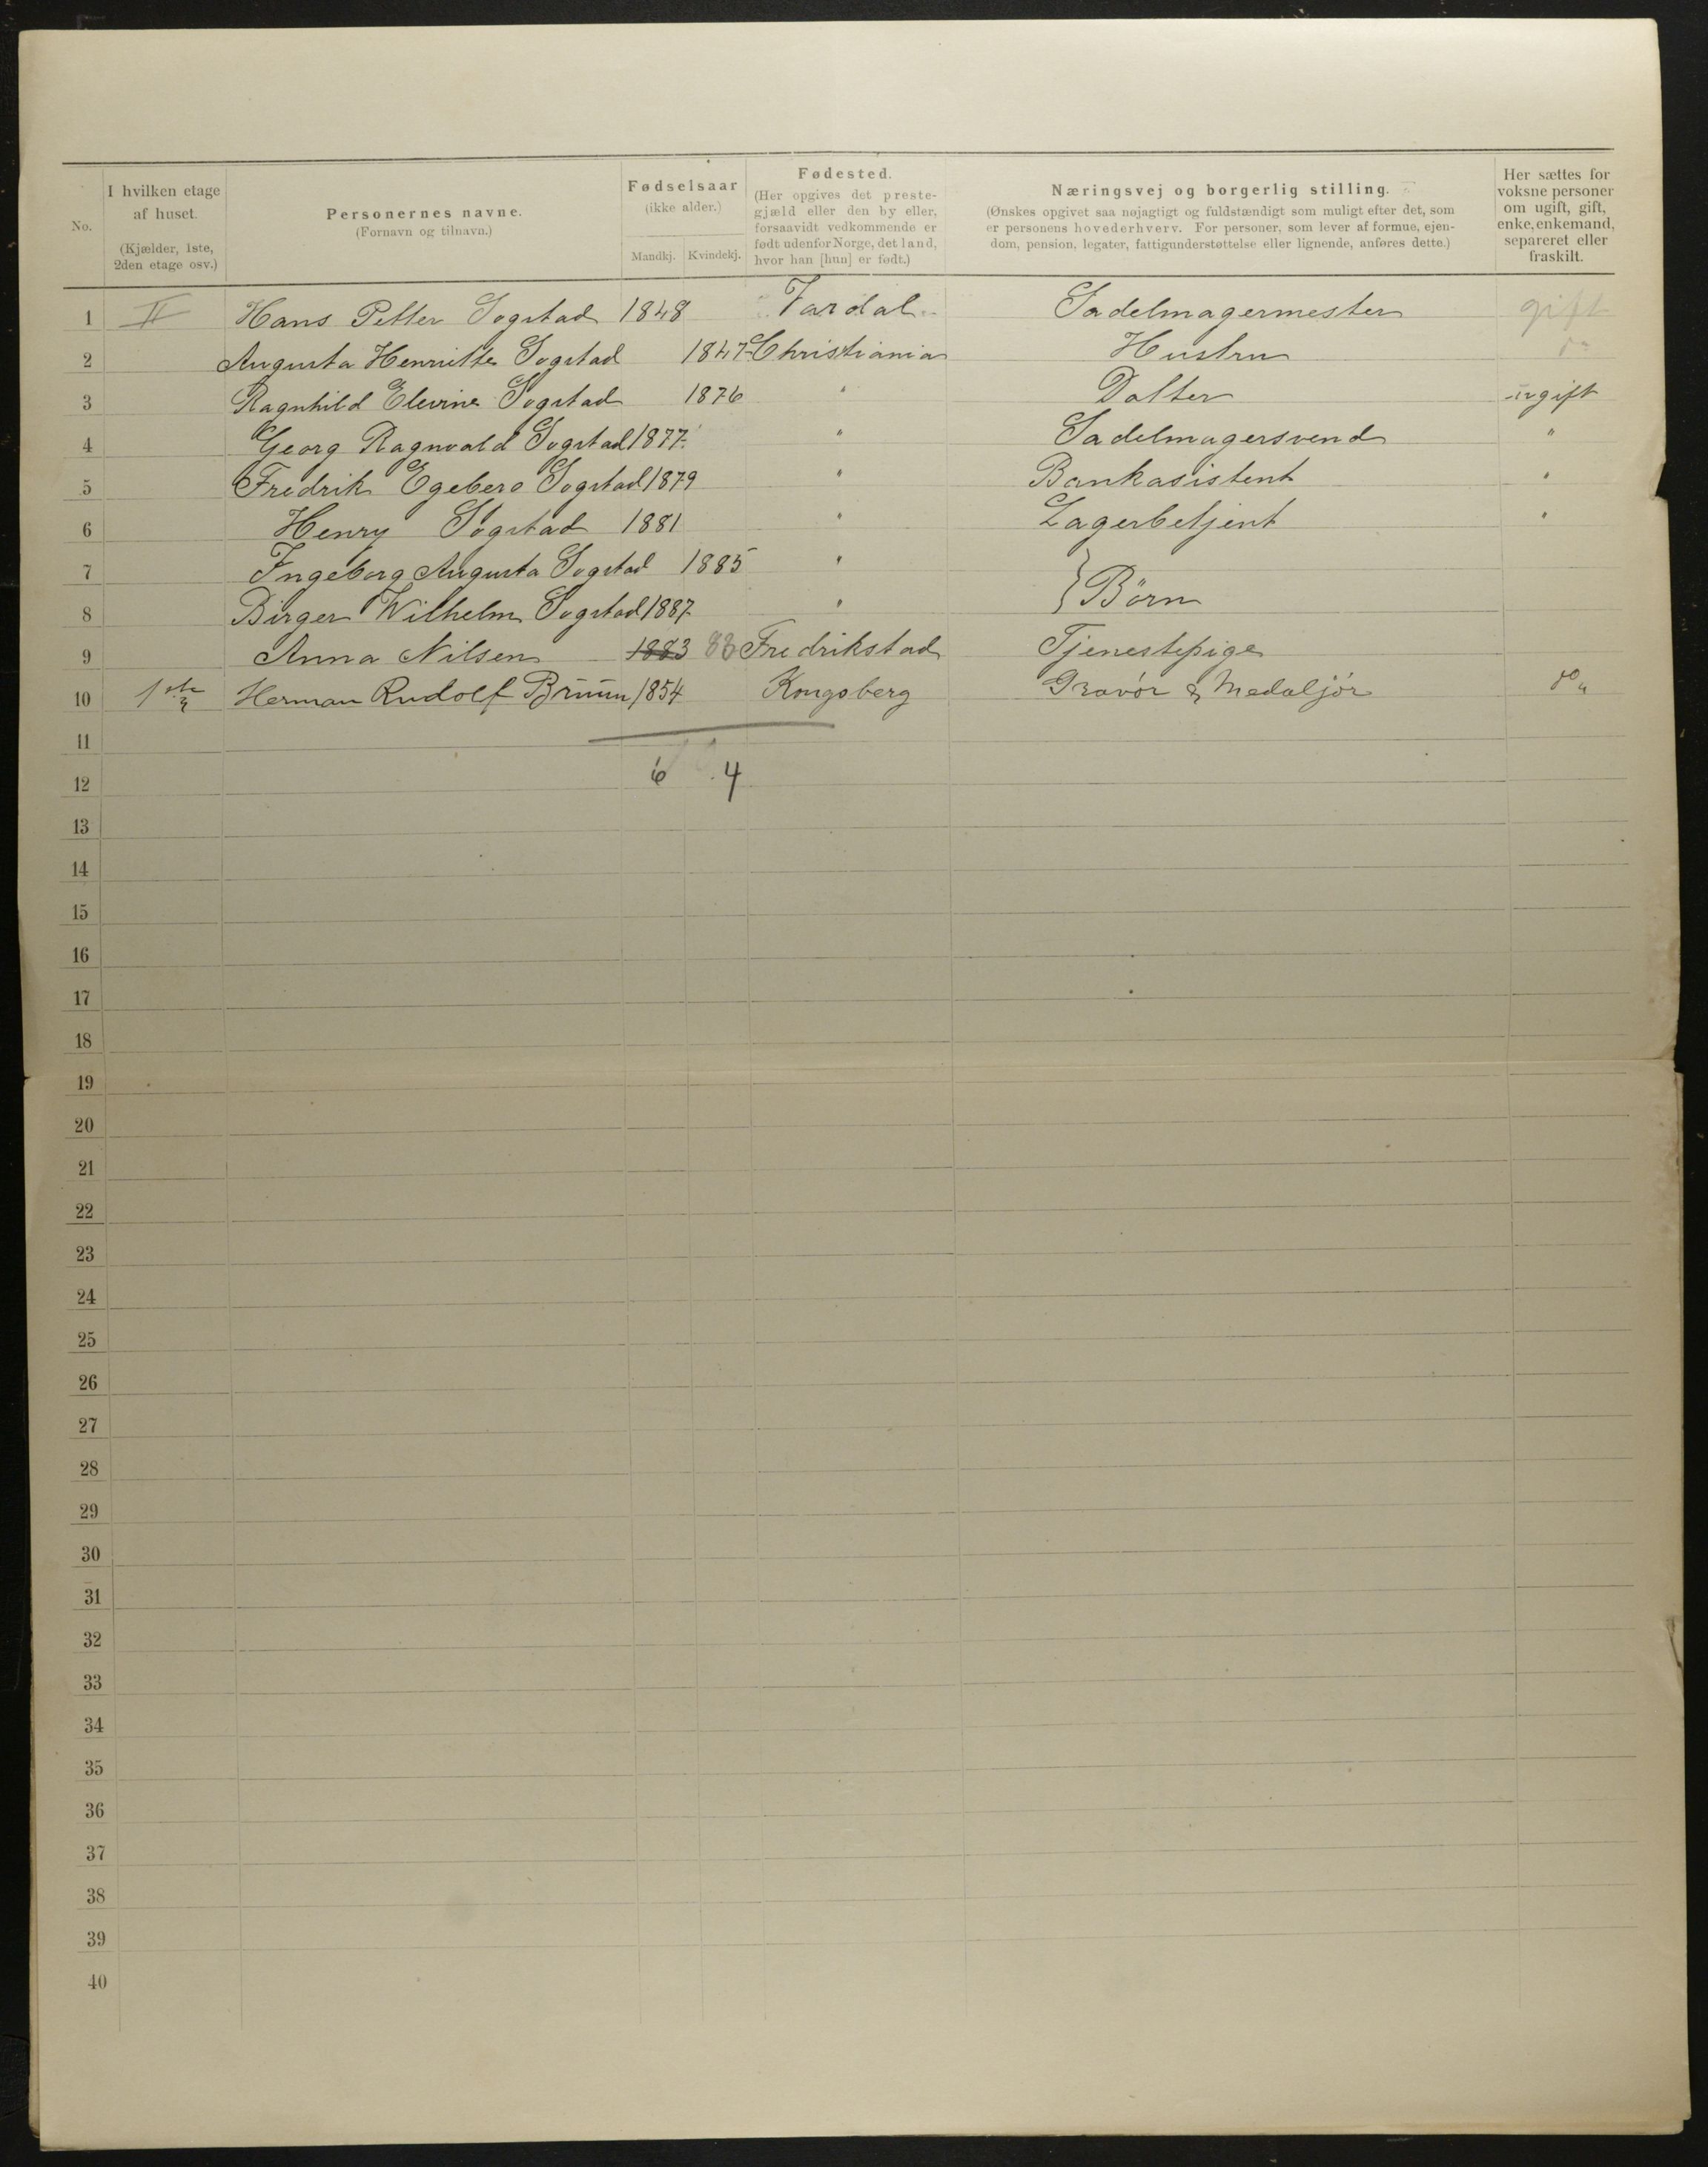 No.
I hvilken etage af huset. (Kjælder, 1ste, 2den etage osv.)
Personernes navne. (Fornavn og tilnavn.)
Fødselsaar (ikke alder.)
Mandkj. Kvindekj.
Fødested. (Her opgives det prestegjæld eller den by eller, forsaavidt vedkommende er født udenfor Norge, det land, hvor han [hun] er født.)
Næringsvej og borgerlig stilling.
(Ønskes opgivet saa nøjagtigt og fuldstændigt som muligt efter det, som er personens hovederhverv. For personer, som lever af formue, ejendom, pension, legater, fattigunderstøttelse eller lignende, anføres dette.)
Her sættes for voksne personer om ugift, gift, enke, enkemand, separeret eller fraskilt.
1 II Hans Petter Sogstad 1848 Vardal Sadelmagermester gift
2 Augusta Henriette Sogstad 1847 Christiania Hustru do
3 Ragnhild Elevine Sogstad 1876 " Datter ugift
4 Georg Ragnvald Sogstad 1877 " Sadelmagersvend "
5 Fredrik Egeberg Sogstad 1879 " Bankasistent "
6 Henry Sogstad 1881 " Lagerbetjent "
7 Ingeborg Augusta Sogstad 1885 "
8 Birger Wilhelm Sogstad 1887 " } Börn
9 Anna Nilsen 1883 83 Fredrikstad Tjenestepige
10 1ste Herman Rudolf Bruun 1854 Kongsberg Gravör & Medaljör do "
11
12 6 4
13
14
15
16
17
18
19
20
21
22
23
24
25
26
27
28
29
30
31
32
33
34
35
36
37
38
39
40